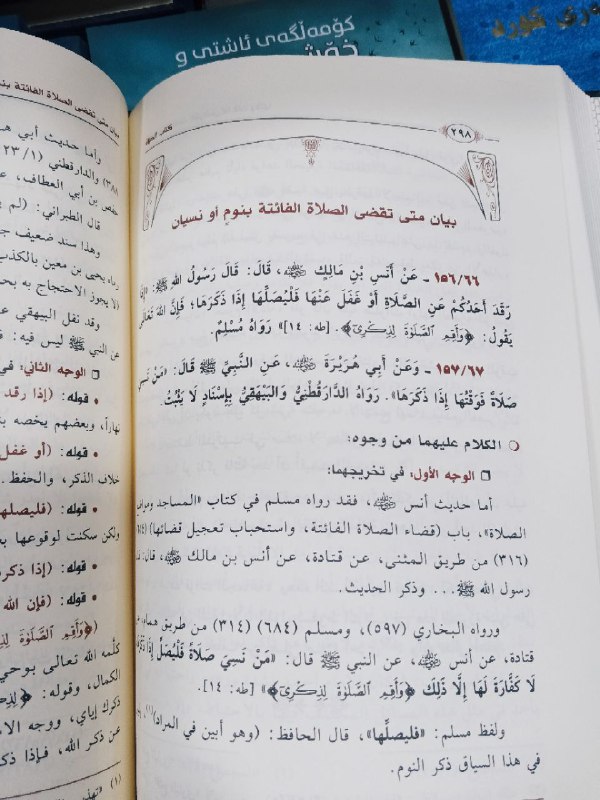 كۆمەڵگەی ئاشتی و
كورد
٢٩٨
بيان متى تقضى الصلاة الفائتة بنوم أو نسيان
١٥٦/٦٦ - عَنْ أَنَسِ بْنِ مَالِكٍ ﵁، قَالَ: قَالَ رَسُولُ اللهِ ﷺ: «إِذَا
رَقَدَ أَحَدُكُمْ عَنِ الصَّلَاةِ أَوْ غَفَلَ عَنْهَا فَلْيُصَلِّهَا إِذَا ذَكَرَهَا؛ فَإِنَّ اللهَ تَعَالَى
يَقُولُ: ﴿وَأَقِمِ ٱلصَّلَوٰةَ لِذِكْرِىٓ﴾. [طه: ١٤]» رَوَاهُ مُسْلِمٌ.
١٥٧/٦٧ - وَعَنْ أَبِي هُرَيْرَةَ ﵁، عَنِ النَّبِيِّ ﷺ قَالَ: «مَنْ نَسِيَ
صَلَاةً فَوَقْتُهَا إِذَا ذَكَرَهَا». رَوَاهُ الدَّارَقُطْنِيُّ وَالبَيْهَقِيُّ بِإِسْنَادٍ لَا يَثْبُتُ.
الكلام عليهما من وجوه:
الوجه الأول: في تخريجهما:
أما حديث أنس ﵁، فقد رواه مسلم في كتاب «المساجد ومواضع
الصلاة»، باب (قضاء الصلاة الفائتة، واستحباب تعجيل قضائها)
(٣١٦) من طريق المثنى، عن قتادة، عن أنس بن مالك ﵁، قال: قال
رسول الله ﷺ... وذكر الحديث.
ورواه البخاري (٥٩٧)، ومسلم (٦٨٤) (٣١٤) من طريق همام، عن
قتادة، عن أنس ﵁، عن النبي ﷺ قال: «مَنْ نَسِيَ صَلَاةً فَلْيُصَلِّ إِذَا ذَكَرَهَا
لَا كَفَّارَةَ لَهَا إِلَّا ذَلِكَ ﴿وَأَقِمِ ٱلصَّلَوٰةَ لِذِكْرِىٓ﴾» [طه: ١٤].
ولفظ مسلم: «فليصلِّها»، قال الحافظ: (وهو أبين في المراد)(١)،
في هذا السياق ذكر النوم.
بيان متى تقضى الصلاة الفائتة
وأما حديث أبي
والدارقطني (١/
حفص بن أبي العطاف، عن
قال الطبراني: (لم
وهذا سند ضعيف
رماه يحيى بن معين بالكذب
(لا يجوز الاحتجاج به
وقد نقل البيهقي
عن النبي ﷺ ليس فيه:
الوجه الثاني: في
قوله: (إذا رقد
نهاراً، وبعضهم يخصه
قوله: (أو غفل
خلاف الذكر، والحفظ.
قوله: (فليصلها
ولكن سكنت لوقوعها
قوله: (إذا
قوله: (فإن الله
(﴿وَأَقِمِ ٱلصَّلَوٰةَ
كلَّمه الله تعالى بوحي
الكمال، وقوله:
ذكرك إياي، ووجه
عن ذكر الله، فإذا
(١)